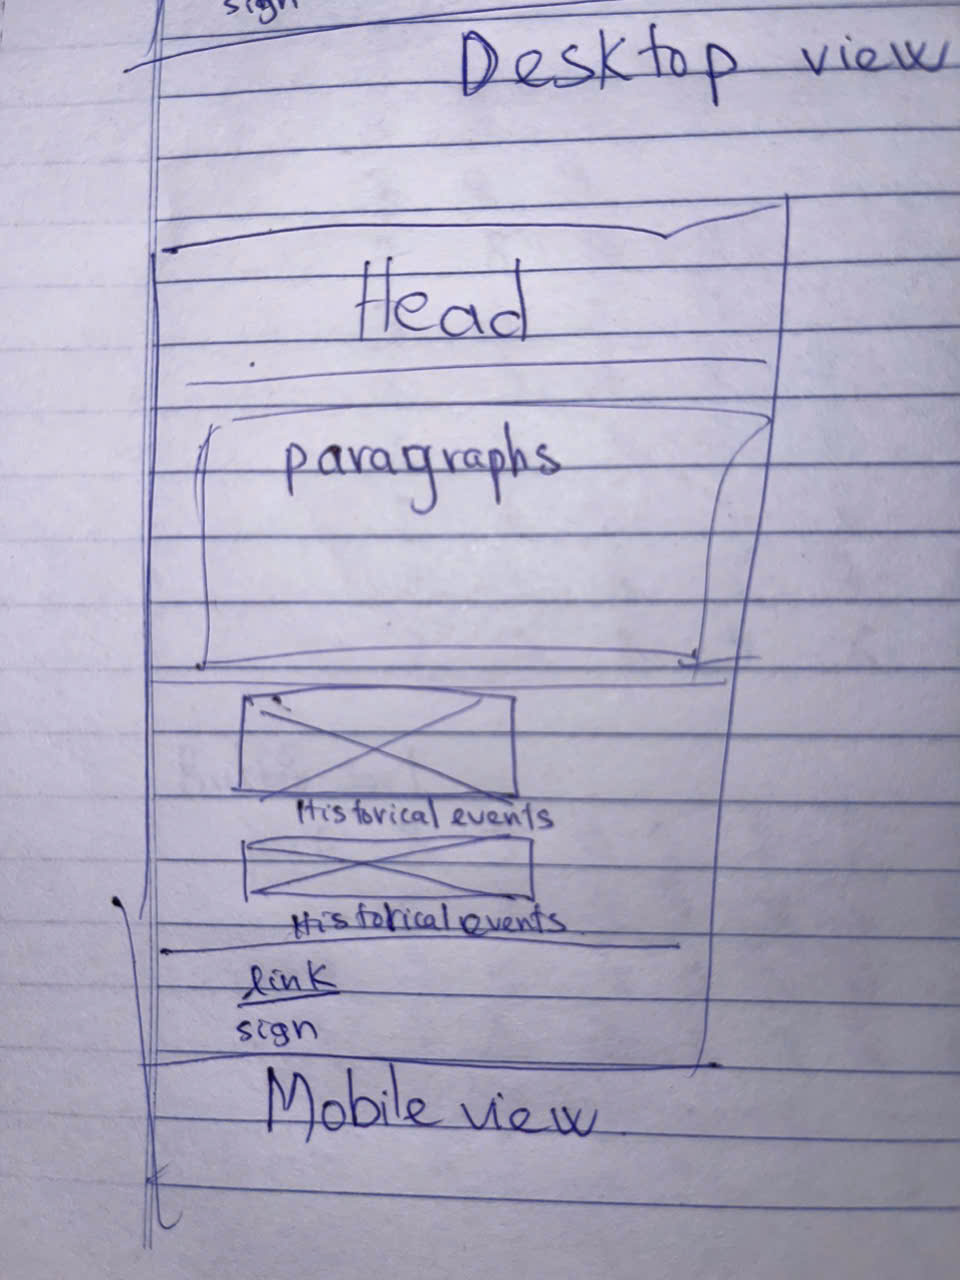 sign
Desktop view
Head
paragraphs
Historical events
Historical events
link
sign
Mobile view